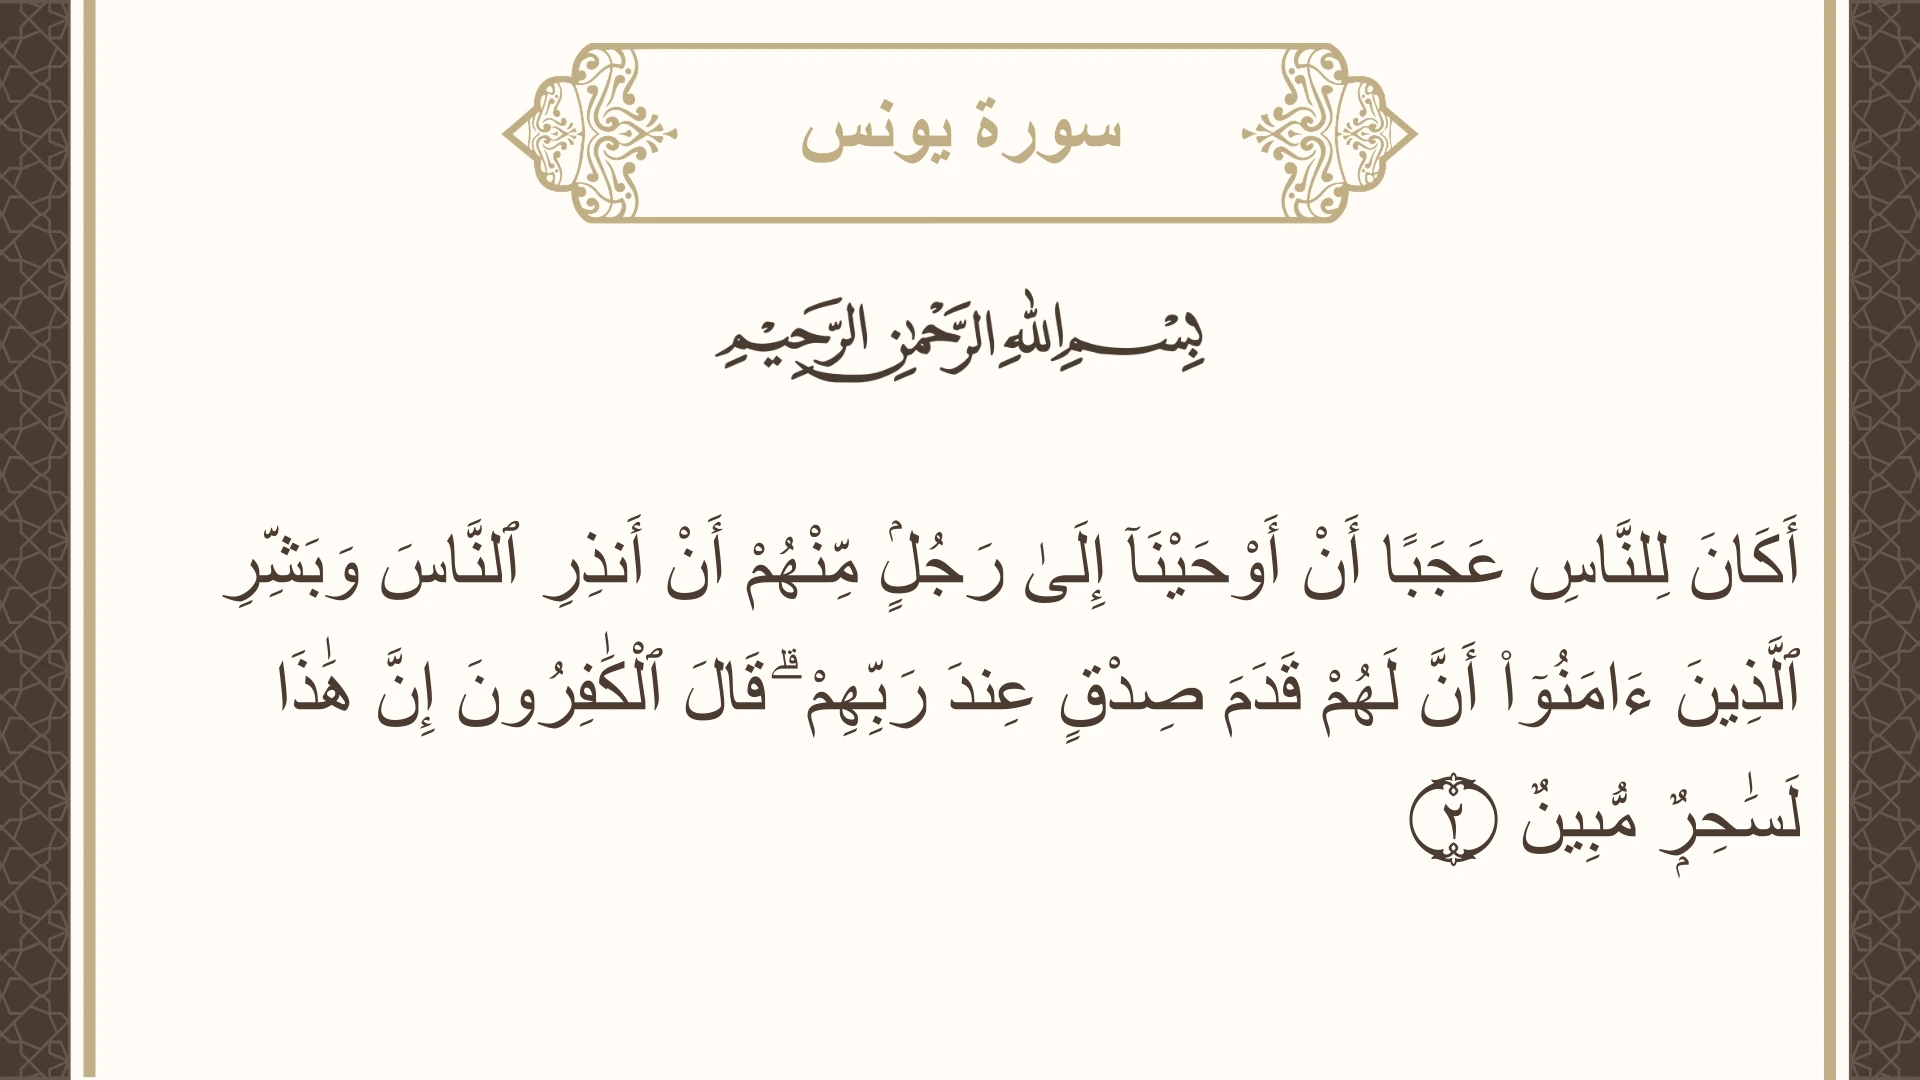 سورة يونس
بِسْمِ اللهِ الرَّحْمٰنِ الرَّحِيْمِ
أَكَانَ لِلنَّاسِ عَجَبًا أَنْ أَوْحَيْنَآ إِلَىٰ رَجُلٍۢ مِّنْهُمْ أَنْ أَنذِرِ ٱلنَّاسَ وَبَشِّرِ
ٱلَّذِينَ ءَامَنُوٓا۟ أَنَّ لَهُمْ قَدَمَ صِدْقٍ عِندَ رَبِّهِمْ ۗ قَالَ ٱلْكَٰفِرُونَ إِنَّ هَٰذَا
لَسَٰحِرٌۭ مُّبِينٌ ٢